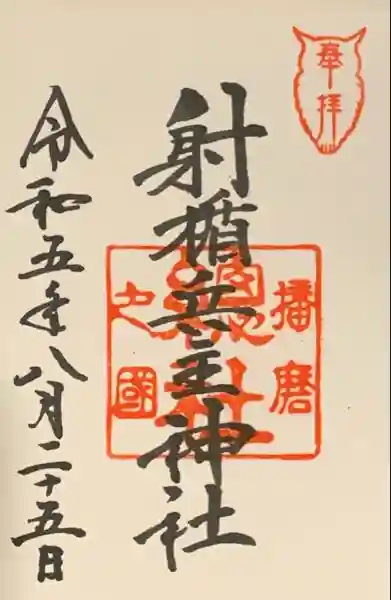 奉拝
射楯兵主神社
播磨
之國
総社
令和五年八月二十五日